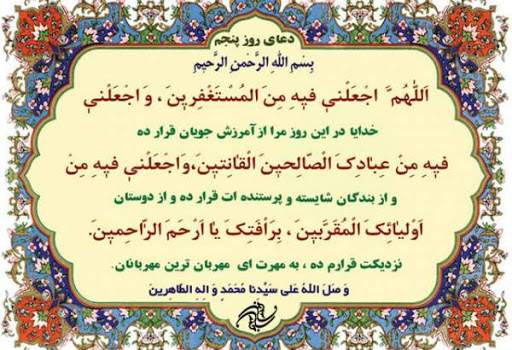 دعای روز پنجم
بِسْمِ اللهِ الرَّحْمنِ الرَّحیمِ
اَللّهُمَّ اجْعَلْنی فیهِ مِنَ الْمُسْتَغْفِرینَ ، وَ اجْعَلْنی
خدایا در این روز مرا از آمرزش جویان قرار ده
فیهِ مِنْ عِبادِکَ الْصّالِحینَ الْقانِتینَ،وَاجْعَلْنی فیهِ مِنْ
و از بندگان شایسته و پرستنده ات قرار ده و از دوستان
اَوْلِیائِکَ الْمُقَرَّبینَ ، بِرَأفَتِکَ یا اَرْحَمَ الرّاحِمینَ.
نزدیکت قرارم ده ، به مهرت ای مهربان ترین مهربانان.
وَ صَلَ اللهُ عَلی سَیِّدنا مُحَمَدٍ وَ الِهِ الطّاهِرینَ